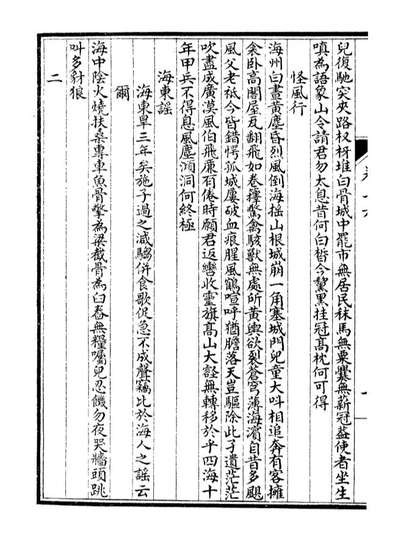 兒復馳突夾路杈枒堆白骨城中罷市無居民秣馬無粟爨無薪冠蓋使者坐生
嗔為語象山令請君勿太息昔何白皙今黧黑拄冠高枕何可得
怪風行
海州白晝黃塵昏烈風倒海搖山根城崩一角塞城門兒童大叫相追奔有客擁
衾卧高閣屋瓦翻飛如卷籜驚禽駭獸無處所黃輿欲裂蒼穹薄海濱自昔多颶
風父老祗今皆錯愕孤城屢破血痕腥風鶴喧呼猶膽落天豈驅除此孑遺茫茫
吹盡成廣漠風伯飛廉有倦時願君返轡收靈旗髙山大諡無轉移於乎四海十
年甲兵不得息風塵澒洞何終極
海東謡
海東旱三年矣施子過之滅騶併食歌促急不成聲竊比於海人之謡云
爾
海中陰火燒扶桑專車魚骨擎為梁截骨為臼舂無糧囑兒忍饑勿夜哭牆頭跳
叫多豺狼
二